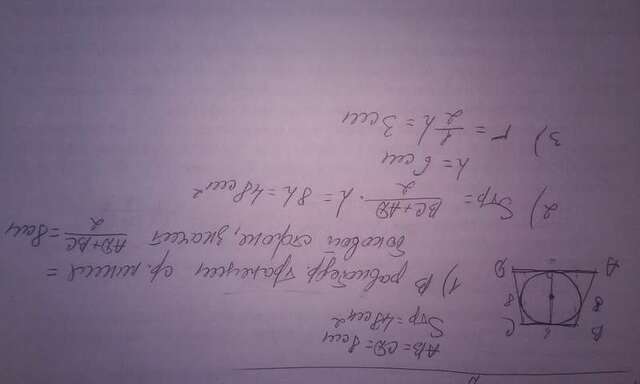 AB=CD=8см
Sтр=48см²
1) В равнобедр. трапеции ср. линия =
боковой стороне, значит (AD+BC)/2 = 8см
2) Sтр = (BC+AD)/2 · h = 8h = 48см²
h = 6см
3) r = 1/2 h = 3см
B C
8 8
A D